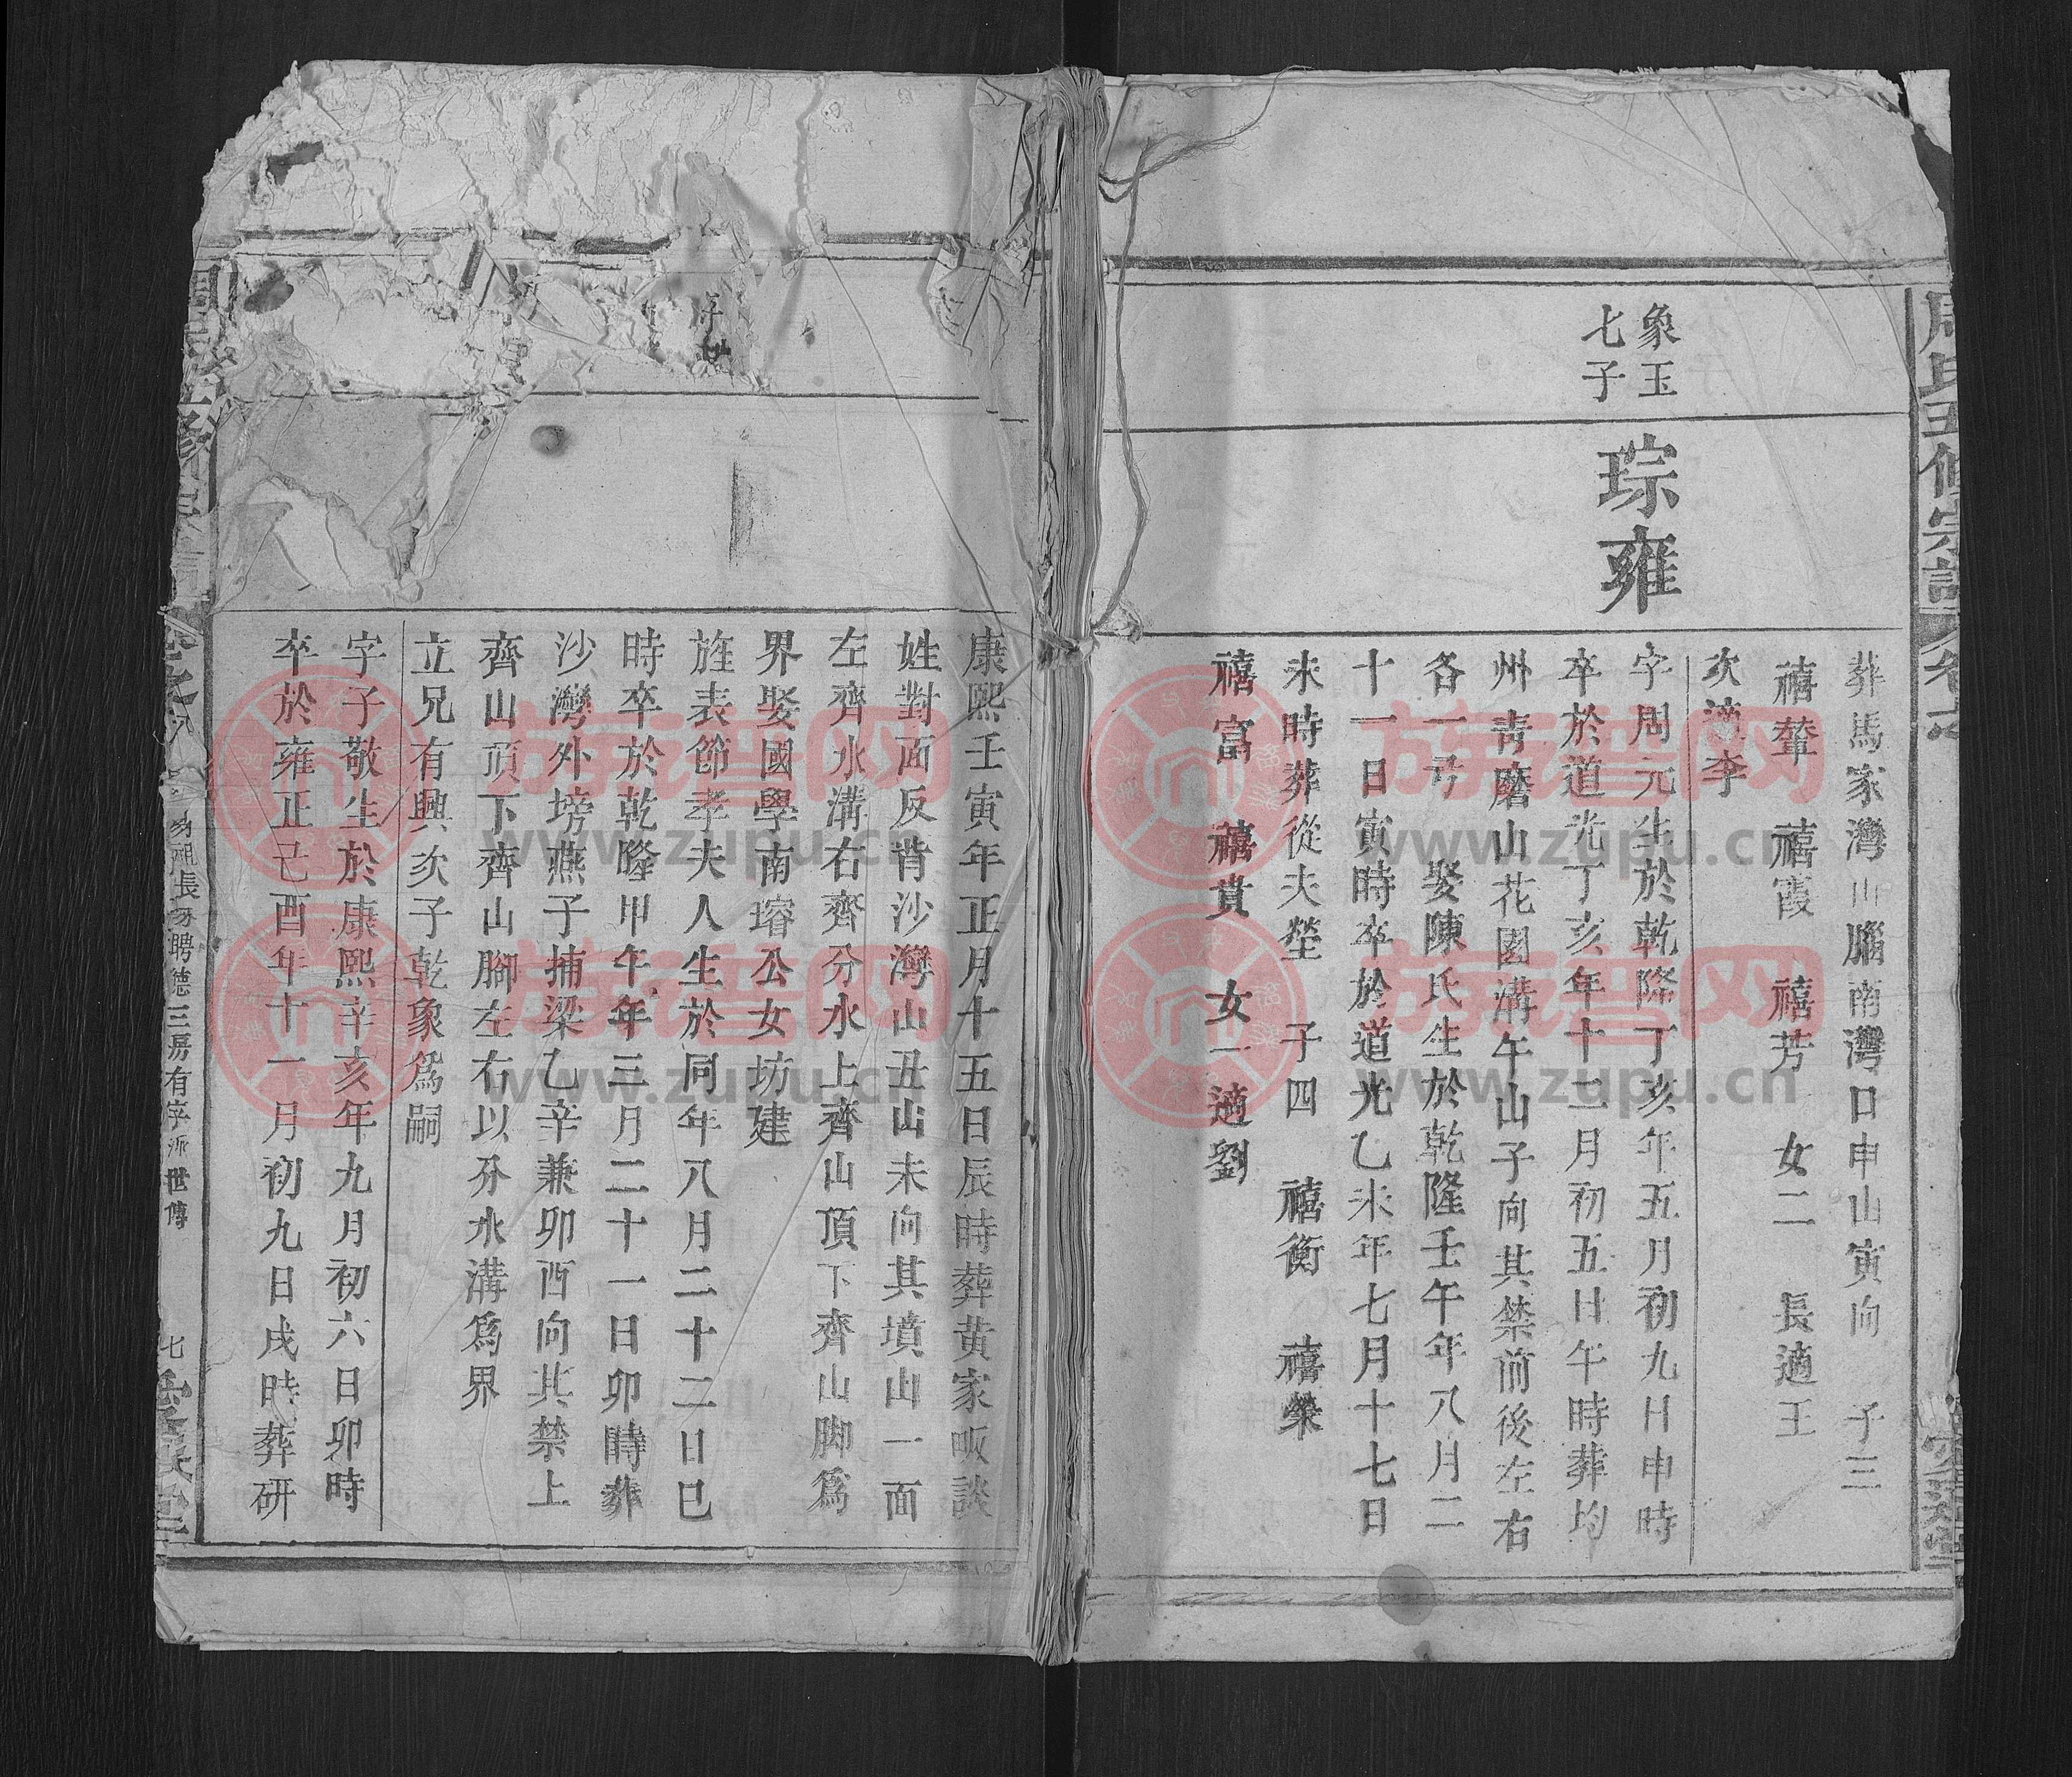 周氏五修宗譜
卷
葬馬家灣山腦南灣口申山寅向　子三
禧輦　禧霞　禧芳　女二　長適王
次適李
象玉
七子
琮雍
字周元生於乾隆丁亥年五月初九日申時
卒於道光丁亥年十二月初五日午時葬均
州青磨山花園溝午山子向其禁前後左右
各一弓　娶陳氏生於乾隆壬午年八月二
十一日寅時卒於道光乙未年七月十七日
未時葬從夫塋　子四　禧衡　禧榮
禧富　禧貴　女一適劉
康熙壬寅年正月十五日辰時葬黄家畈談
姓對面反背沙灣山丑山未向其墳山一面
左齊水溝右齊分水上齊山頂下齊山脚爲
界娶國學南瑢公女坊建
旌表節孝夫人生於同年八月二十二日巳
時卒於乾隆甲午年三月二十一日卯時葬
沙灣外塝燕子捕梁乙辛兼卯酉向其禁上
齊山頂下齊山腳左右以分水溝爲界
立兄有興次子乾象爲嗣
字子敬生於康熙辛亥年九月初六日卯時
卒於雍正己酉年十一月初九日戌時葬研
祖長
聘德三房有字派世傳
七
族谱网
www.zupu.cn
族谱网
www.zupu.cn
族谱网
www.zupu.cn
族谱网
www.zupu.cn